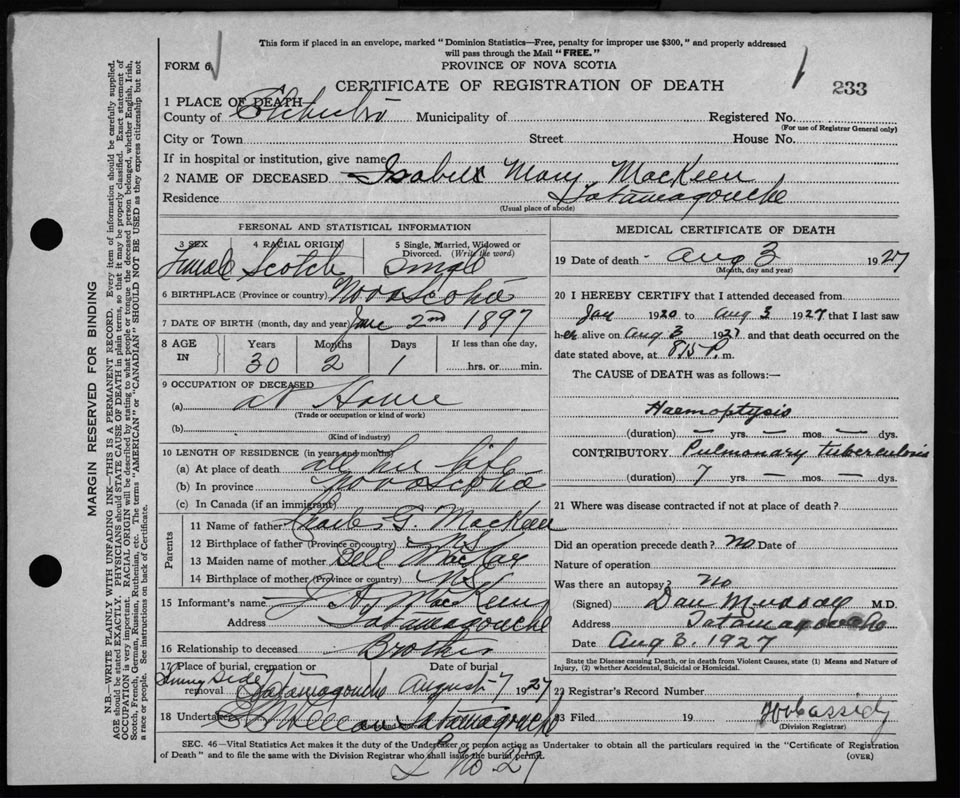 This form if placed in an envelope, marked "Dominion Statistics—Free, penalty for improper use $300," and properly addressed
will pass through the Mail "FREE."
FORM 6
PROVINCE OF NOVA SCOTIA
CERTIFICATE OF REGISTRATION OF DEATH
233
1 PLACE OF DEATH
County of Colchester Municipality of Registered No.
(For use of Registrar General only)
City or Town Street House No.
If in hospital or institution, give name
2 NAME OF DECEASED Mary MacKeen
Residence Tatamagouche
(Usual place of abode)
PERSONAL AND STATISTICAL INFORMATION
3 SEX 4 RACIAL ORIGIN 5 Single, Married, Widowed or Divorced. (Write the word)
Female Scotch Single
6 BIRTHPLACE (Province or country) Nova Scotia
7 DATE OF BIRTH (month, day and year) June 2nd 1897
8 AGE IN Years Months Days If less than one day,
30 2 1 hrs. or min.
9 OCCUPATION OF DECEASED
(a) at Home
(Trade or occupation or kind of work)
(b)
(Kind of industry)
10 LENGTH OF RESIDENCE (in years and months)
(a) At place of death all her life
(b) In province Nova Scotia
(c) In Canada (if an immigrant)
Parents
11 Name of father Charles G. MacKeen
12 Birthplace of father (Province or country) N.S.
13 Maiden name of mother Bell
14 Birthplace of mother (Province or country) N.S.
15 Informant's name MacKeen
Address Tatamagouche
16 Relationship to deceased Brother
17 Place of burial, cremation or removal Date of burial
Sunny Side Tatamagouche August 7 1927
18 Undertaker Tatamagouche
MEDICAL CERTIFICATE OF DEATH
19 Date of death Aug 3 1927
(Month, day and year)
20 I HEREBY CERTIFY that I attended deceased from
Jan 1920 to Aug 3 1927 that I last saw
her alive on Aug 3 1927 and that death occurred on the
date stated above, at 8.15 P. m.
The CAUSE of DEATH was as follows:—
Haemoptysis
(duration) — yrs. — mos. — dys.
CONTRIBUTORY. Pulmonary tuberculosis
(duration) 7 yrs. — mos. — dys.
21 Where was disease contracted if not at place of death?
Did an operation precede death? No Date of
Nature of operation
Was there an autopsy? No
(Signed) Dan M.D.
Address Tatamagouche
Date Aug 3. 1927
State the Disease causing Death, or in death from Violent Causes, state (1) Means and Nature of
Injury, (2) whether Accidental, Suicidal or Homicidal.
22 Registrar's Record Number
23 Filed 19 Cassidy
(Division Registrar)
SEC. 46—Vital Statistics Act makes it the duty of the Undertaker or person acting as Undertaker to obtain all the particulars required in the "Certificate of Registration
of Death" and to file the same with the Division Registrar who shall issue the burial permit. (OVER)
No 27
MARGIN RESERVED FOR BINDING
N.B.—WRITE PLAINLY WITH UNFADING INK—THIS IS A PERMANENT RECORD. Every item of information should be carefully supplied.
AGE should be stated EXACTLY. PHYSICIANS should STATE CAUSE OF DEATH in plain terms, so that it may be properly classified. Exact statement of
OCCUPATION is very important. RACIAL ORIGIN will be described by stating to what people or tongue the deceased person belonged, whether English, Irish,
Scotch, French, German, Russian, Ruthenian, etc. The terms "AMERICAN" or "CANADIAN" SHOULD NOT BE USED as they express citizenship but not
a race or people. See instructions on back of Certificate.